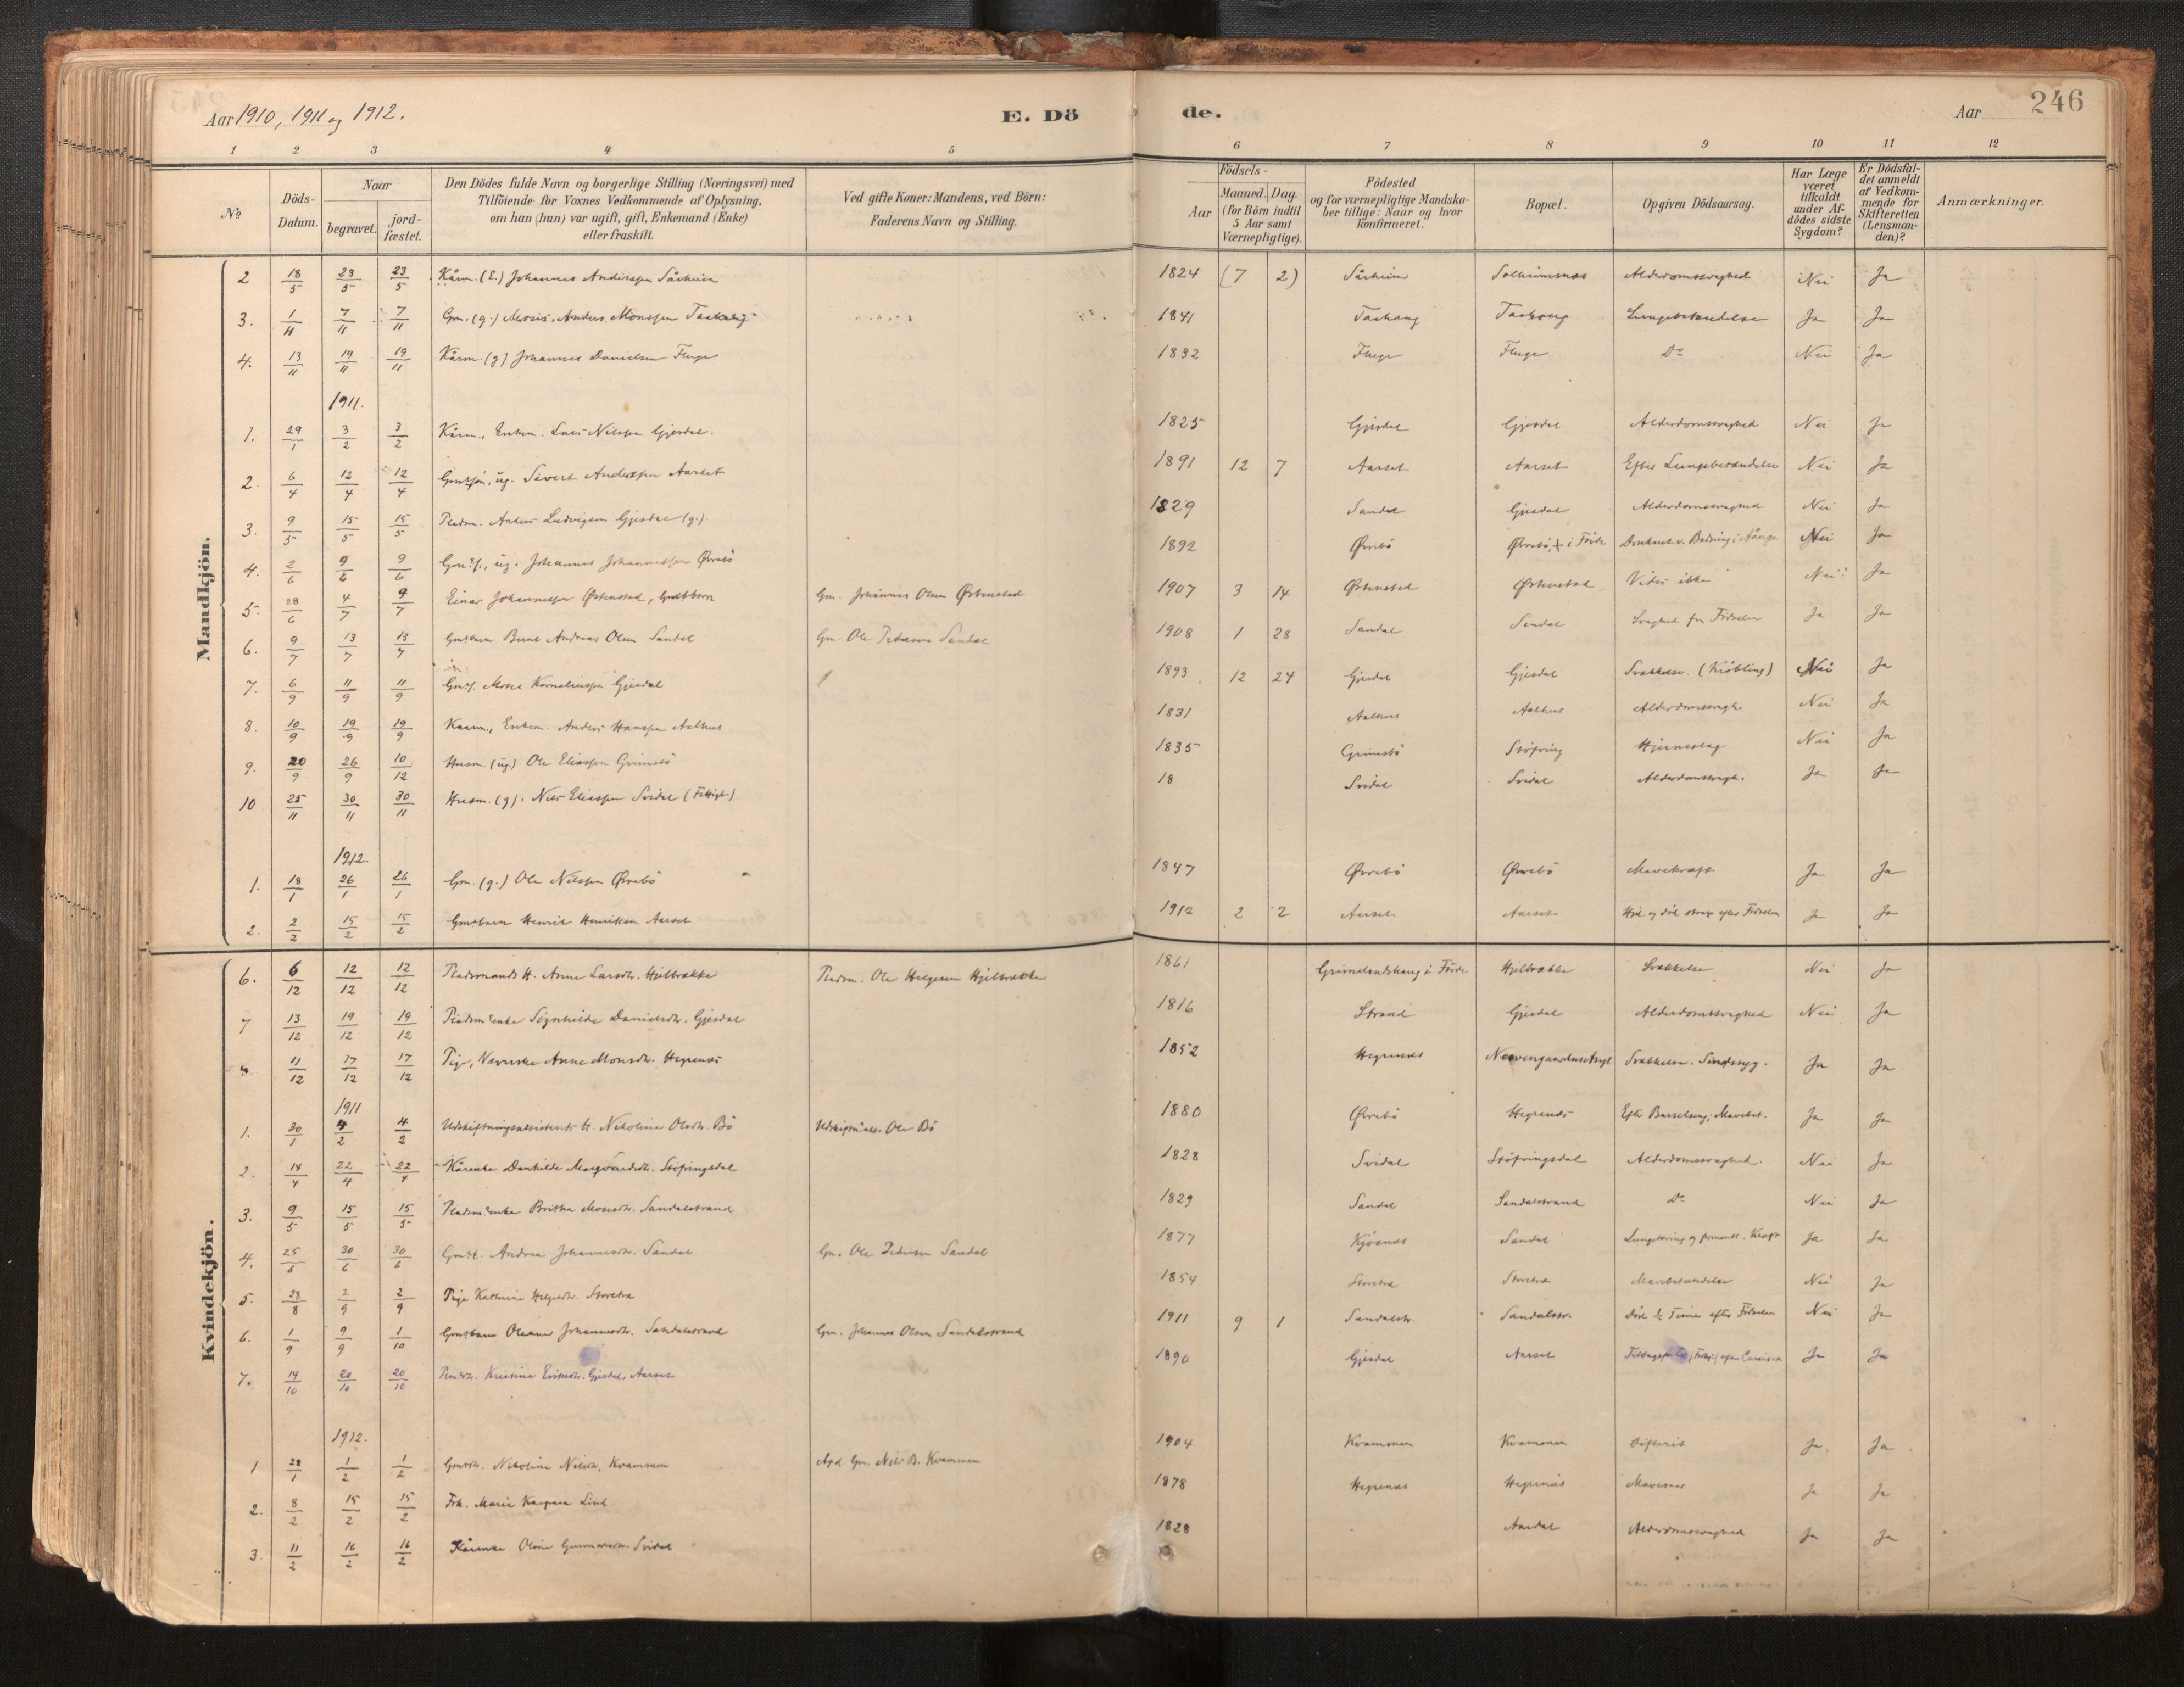 Aar 1910, 1911 og 1912.
E. Dö
de.
Aar
246
1 2 3 4 5 6 7 8 9 10 11 12
No
Döds-Datum.
Naar
begravet.
jord-fæstet.
Den Dödes fulde Navn og borgerlige Stilling (Næringsvei) med
Tilföiende for Voxnes Vedkommende af Oplysning,
om han (hun) var ugift, gift, Enkemand (Enke)
eller fraskilt.
Ved gifte Koner: Mandens, ved Börn:
Faderens Navn og Stilling.
Födsels-
Aar
Maaned. Dag.
(for Börn indtil
5 Aar samt
Værnepligtige).
Födested
og for værnepligtige Mandska-
ber tillige: Naar og hvor
konfirmeret.
Bopæl.
Opgiven Dödsaarsag.
Har Læge
været
tilkaldt
under Af-
dödes sidste
Sygdom?
Er Dödsfal-
det anmeldt
af Vedkom-
mende for
Skifteretten
(Lensman-
den)?
Anmærkninger.
Mandkjön.
2 18/5 23/5 23/5 Kårm. (E.) Johannes Anderssen Sårheim 1824 (7 2) Sårheim Solheimsnes Alderdomssvaghed Nei Ja
3. 1/11 7/11 7/11 Gm. (g.) Anders Monssen 1841 Lungebetændelse Ja Ja
4. 13/11 19/11 19/11 Kårm. (g) Johannes Danielsen Fluge 1832 Fluge Fluge Do Nei Ja
1911.
1. 29/1 3/2 3/2 Kårm., Enkem. Lars Nilssen Gjesdal. 1825 Gjesdal Gjesdal Alderdomssvaghed Nei Ja
2. 6/4 12/4 12/4 ug. Sivert Anderssen Aarset 1891 12 7 Aarset Aarset Efter Lungebetændelse Nei Ja
3. 9/5 15/5 15/5 Pladsm. Anders Ludvigsen Gjesdal (g.) 1829 Sandal Gjesdal Alderdomssvaghed Nei Ja
4. 2/6 9/6 9/6 ug. Johannes Johannessen Øvrebö 1892 Øvrebö Øvrebö, i Förde Druknet v. Badning i Nei Ja
5. 28/6 4/7 9/7 Einar Johannessen Østenstad, Gmdsbarn Gm. Johannes Olsen Østenstad 1907 3 14 Østenstad Østenstad Vides ikke Nei Ja
6. 9/7 13/7 13/7 Gmdsbarn Bernt Andreas Olsen Sandal Gm. Ole Pedersen Sandal 1908 1 28 Sandal Sandal Svaghed fra Födselen Ja Ja
7. 6/9 11/9 11/9 Moses Korneliussen Gjesdal 1893 12 24 Gjesdal Gjesdal Svækkelse. (Kröbling) Nei Ja
8. 10/9 19/9 19/9 Kaarm., Enkem. Anders Hanssen Aalhus 1831 Aalhus Aalhus Alderdomssvagh. Nei Ja
9. 20/9 26/9 10/12 Husm (ug.) Ole Eliassen Grimsbö 1835 Grimsbö Stöfring Hjerneslag Nei Ja
10 25/11 30/11 30/11 Husm. (g). Nils Eliassen Svidal (Fattigl.) 18 Svidal Svidal Alderdomssvagh. Ja Ja
1912.
1. 18/1 26/1 26/1 Gm. (g.) Ole Nilssen Øvrebö 1847 Øvrebö Øvrebö Mavekræft Ja Ja
2. 2/2 15/2 15/2 Gmdsbarn Henrik Henriksen Aarset 1912 2 2 Aarset Aarset Hjd. og död strax efter Födselen Ja Ja
Kvindekjön.
6. 6/12 12/12 12/12 Pladsmands H. Anne Larsdtr. Hjelbrække Pladsm. Ole Helgesen Hjelbrække 1861 Grimelandshaug i Förde Hjelbrække Svækkelse Nei Ja
7 13/12 19/12 19/12 Pladsm.enke Sögnhilde Danielsdtr. Gjesdal 1816 Strand Gjesdal Alderdomssvaghed Nei Ja
8. 11/12 17/12 17/12 Pige, Anne Monsdtr. Hegrenæs 1852 Hegrenæs Neevengaardens Asyl Svækkelse. Sindssyg. Ja Ja
1911
1. 30/1 4/2 4/2 Udskiftningsassistents H. Nikoline Olsdtr. Bö Udskiftn.ass. Ole Bö 1880 Øvrebö Hegrenæs Efter Barselseng; Mavebet. Ja Ja
2. 14/4 22/4 22/4 Kårenke Dankilde Margvardsdtr. Stöfringsdal 1828 Svidal Stöfringsdal Alderdomssvaghed. Nei Ja
3. 9/5 15/5 15/5 Pladsm.enke Britha Mosesdtr. Sandalstrand 1829 Sandal Sandalstrand Do Nei Ja
4. 25/6 30/6 30/6 Andrea Johannesdtr. Sandal Gm. Ole Pedersen Sandal 1877 Kjösnæs Sandal Ja Ja
5. 28/8 2/9 2/9 Pige Kathrine Helgesdtr. Storetræ 1854 Storetræ Storetræ Mavebetændelse Nei Ja
6. 1/9 9/9 1/10 Gmdsbarn Oleane Johannesdtr. Sandalstrand Gm. Johannes Olsen Sandalstrand 1911 9 1 Sandalstr. Sandalstr. Död ½ Time efter Födselen Nei Ja
7. 14/10 20/10 20/10 Kristine Eriksdtr. Gjesdal, Aarset 1890 Gjesdal Aarset Ja Ja
1912.
1 28/1 1/2 1/2 Gmdsdtr. Nikoline Nilsdtr. Kvammen Afd. Gm. Nils B. Kvammen 1904 Kvammen Kvammen Difterit Ja. Ja
2. 8/2 15/2 15/2 Frk. Marie Kaspara Lind 1878 Hegrenæs Hegrenæs Mavesaar Ja Ja
3. 11/2 16/2 16/2 Kårenke Oline Gunnarsdtr. Svidal 1828 Aardal Alderdomssvaghed Ja Ja